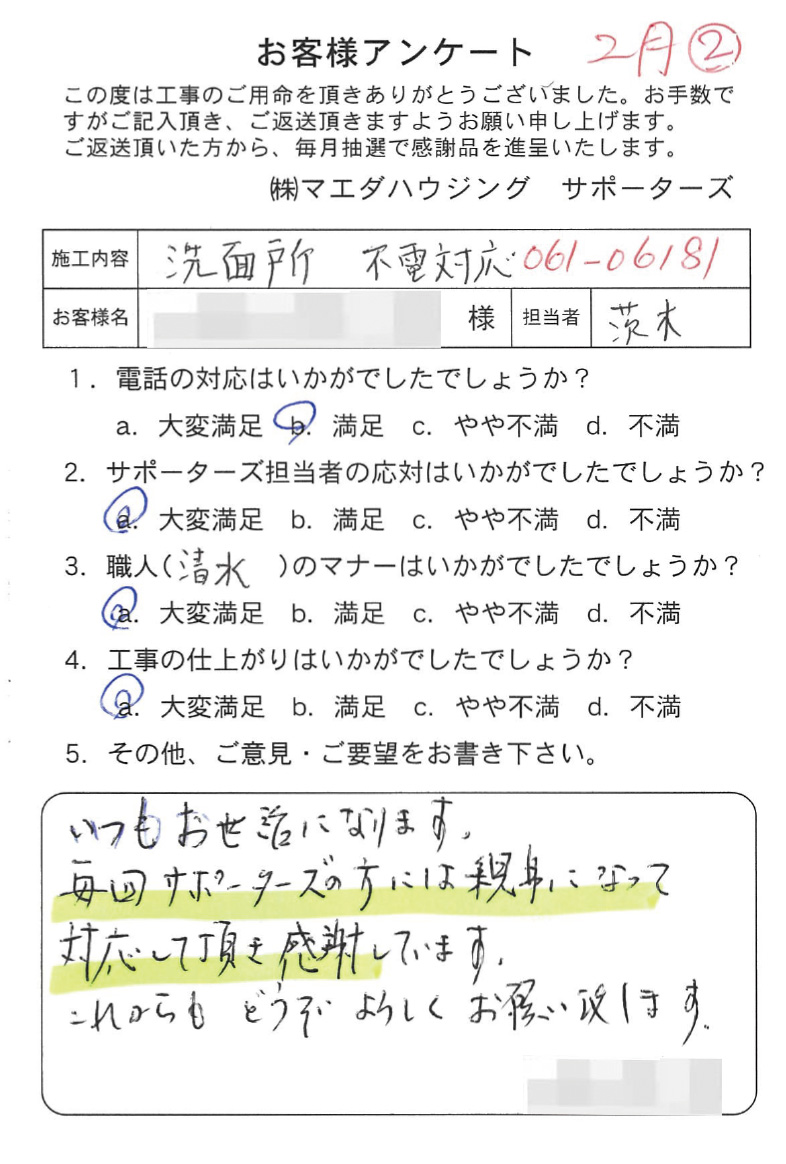 お客様アンケート 2月②
この度は工事のご用命を頂きありがとうございました。お手数で
すがご記入頂き、ご返送頂きますようお願い申し上げます。
ご返送頂いた方から、毎月抽選で感謝品を進呈いたします。
㈱マエダハウジング サポーターズ
施工内容 洗面所 不電対応 061-06181
お客様名 様 担当者 茨木
1. 電話の対応はいかがでしたでしょうか？
a. 大変満足 b. 満足 c. やや不満 d. 不満
2. サポーターズ担当者の応対はいかがでしたでしょうか？
a. 大変満足 b. 満足 c. やや不満 d. 不満
3. 職人(清水 )のマナーはいかがでしたでしょうか？
a. 大変満足 b. 満足 c. やや不満 d. 不満
4. 工事の仕上がりはいかがでしたでしょうか？
a. 大変満足 b. 満足 c. やや不満 d. 不満
5. その他、ご意見・ご要望をお書き下さい。
いつもお世話になります。
毎回サポーターズの方には親身になって
対応して頂き感謝しています。
これからも どうぞ よろしく お願い致します。